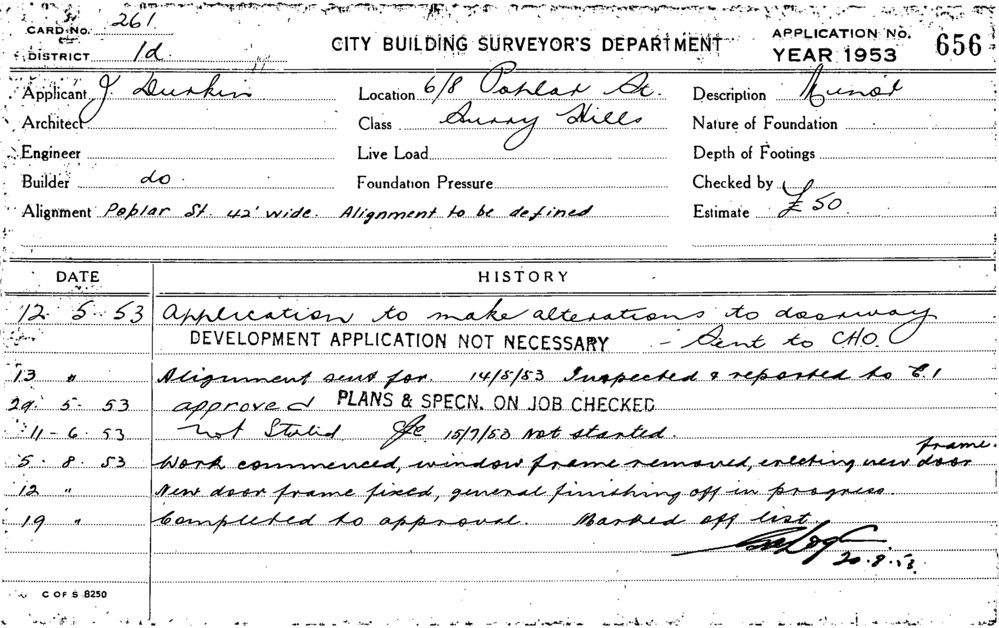 CARD No. 261
DISTRICT 1d
CITY BUILDING SURVEYOR'S DEPARTMENT
APPLICATION No. 656
YEAR 1953
Applicant J Durkin Location 6/8 Poplar St. Description Minor
Architect Class Surry Hills Nature of Foundation
Engineer Live Load Depth of Footings
Builder do Foundation Pressure Checked by
Alignment Poplar St. 42' wide. Alignment to be defined Estimate £50
DATE HISTORY
12 5 53 Application to make alterations to doorway
DEVELOPMENT APPLICATION NOT NECESSARY - Sent to CHO.
13 " Alignment sent for. 14/5/53 Inspected & reported to C.I
29. 5. 53 approved PLANS & SPECN. ON JOB CHECKED
11-6.53 not Started 15/7/53 Not started.
5.8.53 Work commenced, window frame removed, erecting new door frame.
12 " New door frame fixed, general finishing off in progress.
19 " Completed to approval. Marked off list
20.8.53
C OF S 8250